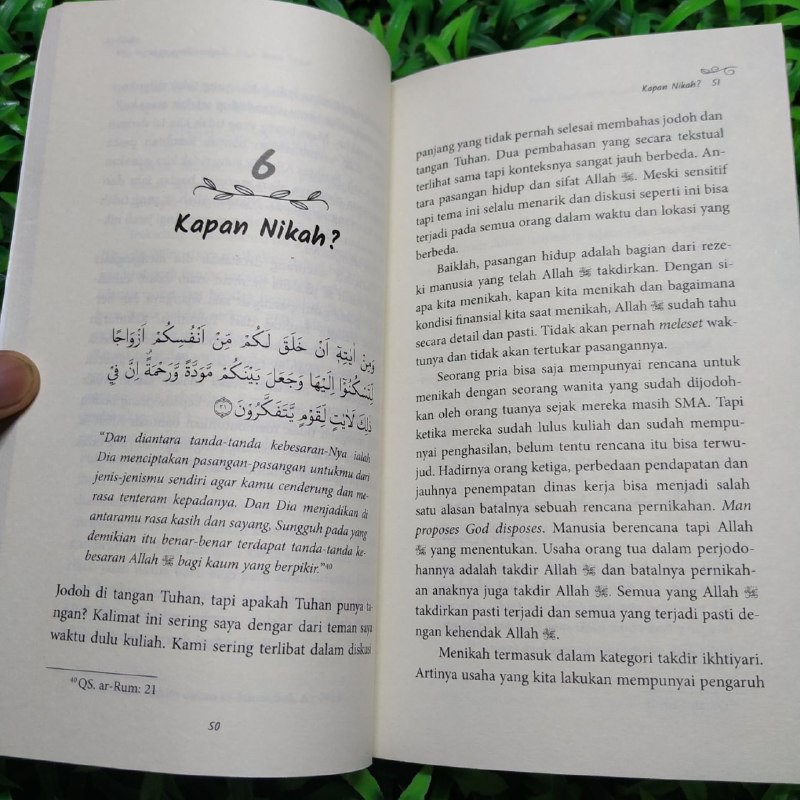 6
Kapan Nikah?
وَمِنْ اٰيٰتِهٖٓ اَنْ خَلَقَ لَكُمْ مِّنْ اَنْفُسِكُمْ اَزْوَاجًا
لِّتَسْكُنُوْٓا اِلَيْهَا وَجَعَلَ بَيْنَكُمْ مَّوَدَّةً وَّرَحْمَةً ۗاِنَّ فِيْ
ذٰلِكَ لَاٰيٰتٍ لِّقَوْمٍ يَّتَفَكَّرُوْنَ ٢١
“Dan diantara tanda-tanda kebesaran-Nya ialah
Dia menciptakan pasangan-pasangan untukmu dari
jenis-jenismu sendiri agar kamu cenderung dan me-
rasa tenteram kepadanya. Dan Dia menjadikan di
antaramu rasa kasih dan sayang, Sungguh pada yang
demikian itu benar-benar terdapat tanda-tanda ke-
besaran Allah ﷻ bagi kaum yang berpikir.”⁴⁰
Jodoh di tangan Tuhan, tapi apakah Tuhan punya ta-
ngan? Kalimat ini sering saya dengar dari teman saya
waktu dulu kuliah. Kami sering terlibat dalam diskusi
⁴⁰QS. ar-Rum: 21
50
Kapan Nikah? 51
panjang yang tidak pernah selesai membahas jodoh dan
tangan Tuhan. Dua pembahasan yang secara tekstual
terlihat sama tapi konteksnya sangat jauh berbeda. An-
tara pasangan hidup dan sifat Allah ﷻ. Meski sensitif
tapi tema ini selalu menarik dan diskusi seperti ini bisa
terjadi pada semua orang dalam waktu dan lokasi yang
berbeda.
Baiklah, pasangan hidup adalah bagian dari reze-
ki manusia yang telah Allah ﷻ takdirkan. Dengan si-
apa kita menikah, kapan kita menikah dan bagaimana
kondisi finansial kita saat menikah, Allah ﷻ sudah tahu
secara detail dan pasti. Tidak akan pernah meleset wak-
tunya dan tidak akan tertukar pasangannya.
Seorang pria bisa saja mempunyai rencana untuk
menikah dengan seorang wanita yang sudah dijodoh-
kan oleh orang tuanya sejak mereka masih SMA. Tapi
ketika mereka sudah lulus kuliah dan sudah mempu-
nyai penghasilan, belum tentu rencana itu bisa terwu-
jud. Hadirnya orang ketiga, perbedaan pendapatan dan
jauhnya penempatan dinas kerja bisa menjadi salah
satu alasan batalnya sebuah rencana pernikahan. Man
proposes God disposes. Manusia berencana tapi Allah
ﷻ yang menentukan. Usaha orang tua dalam perjodo-
hannya adalah takdir Allah ﷻ dan batalnya pernikah-
an anaknya juga takdir Allah ﷻ. Semua yang Allah ﷻ
takdirkan pasti terjadi dan semua yang terjadi pasti de-
ngan kehendak Allah ﷻ.
Menikah termasuk dalam kategori takdir ikhtiyari.
Artinya usaha yang kita lakukan mempunyai pengaruh